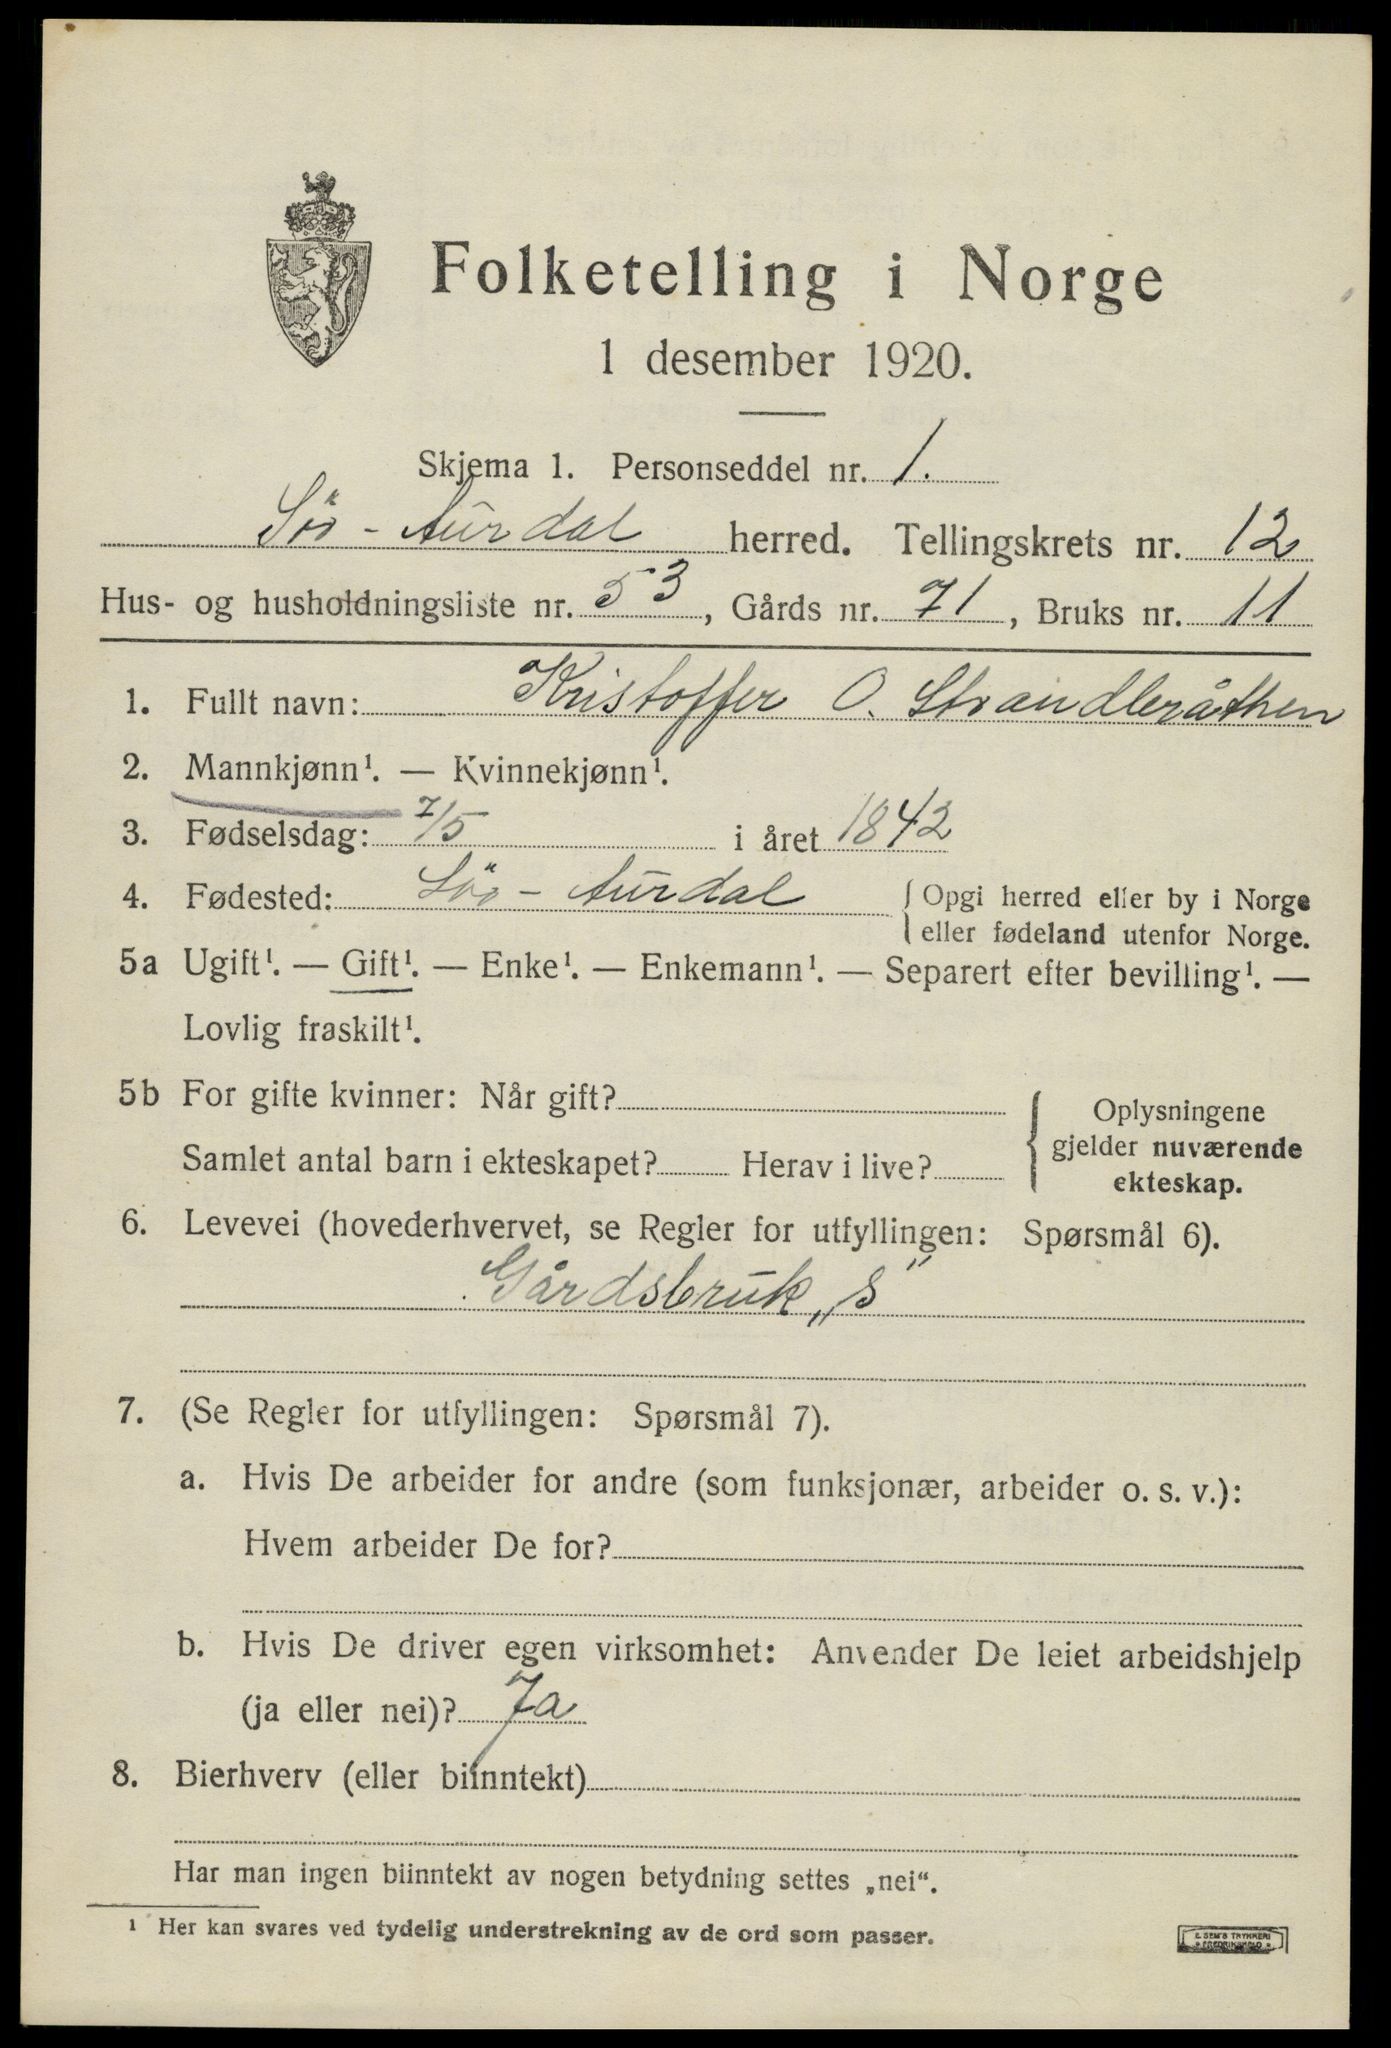 Folketelling i Norge
1 desember 1920.
Skjema 1. Personseddel nr. 1.
Sör - Aurdal herred. Tellingskrets nr. 12
Hus- og husholdningsliste nr. 53, Gårds nr. 71, Bruks nr. 11
1. Fullt navn: Kristoffer O. Strandbråthen
2. Mannkjønn¹. — Kvinnekjønn¹.
3. Fødselsdag: 7/5 i året 1842
4. Fødested: Sör - Aurdal { Opgi herred eller by i Norge
eller fødeland utenfor Norge.
5a Ugift¹. — Gift¹. — Enke¹. — Enkemann¹. — Separert efter bevilling¹. —
Lovlig fraskilt¹.
5b For gifte kvinner: Når gift?
Samlet antal barn i ekteskapet? Herav i live?
{ Oplysningene
gjelder nuværende
ekteskap.
6. Levevei (hovederhvervet, se Regler for utfyllingen: Spørsmål 6).
Gårdsbruk „s"
7. (Se Regler for utfyllingen: Spørsmål 7).
a. Hvis De arbeider for andre (som funksjonær, arbeider o. s. v.):
Hvem arbeider De for?
b. Hvis De driver egen virksomhet: Anvender De leiet arbeidshjelp
(ja eller nei)? Ja
8. Bierhverv (eller biinntekt)
Har man ingen biinntekt av nogen betydning settes „nei“.
¹ Her kan svares ved tydelig understrekning av de ord som passer.
E. SEM'S TRYKKERI
* FREDRIKSHALD *